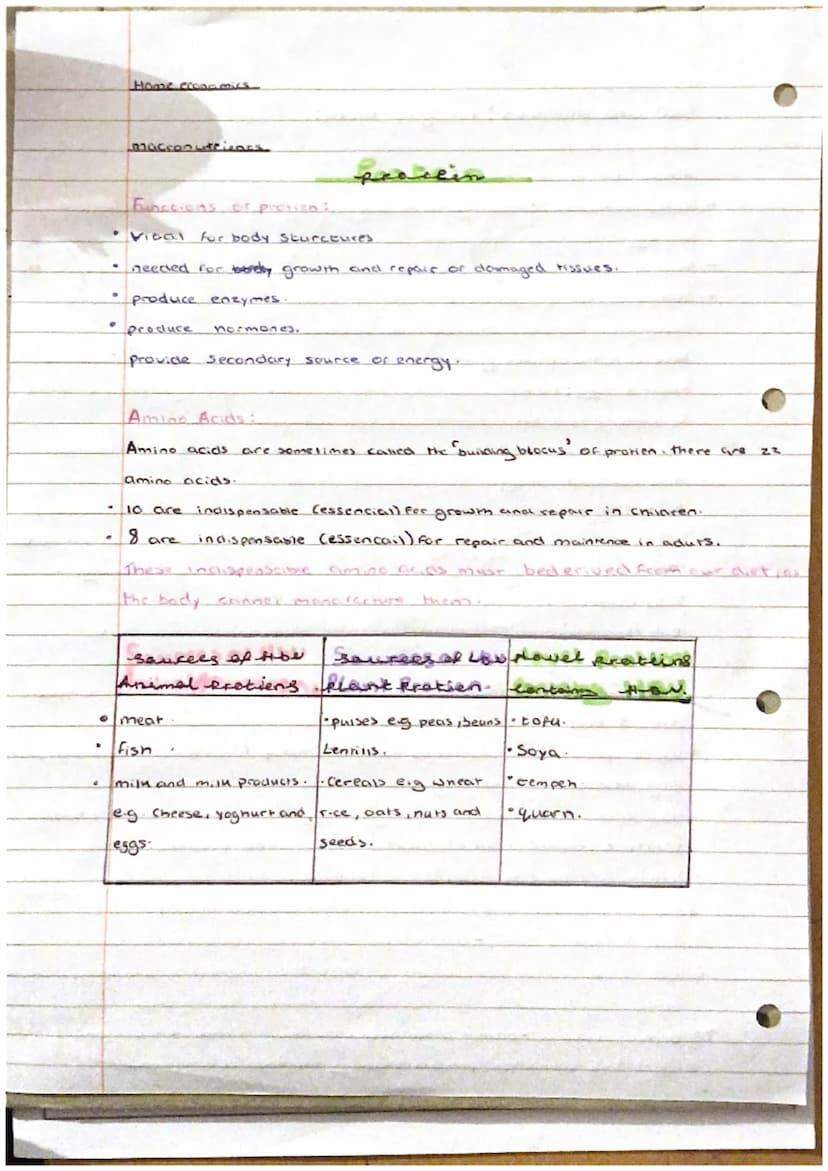 Home economics
macronutrients
protein
Functions of protien:
• Vital for body sturctures
• needed for body growth and repair of damaged tissues.
• produce enzymes.
• produce hormones.
provide secondary source of energy.
Amino Acids:
Amino acids are sometimes called the "building blocks" of protien. there are 22
amino acids.
• 10 are indispensable (essencial) for growth and repair in children.
• 8 are indispensable (essencail) for repair and maintence in aduts.
These indispensible amino acids must be derived from our diet, as
the body cannot manufacture them.
Sources of HBV
Animal Protiens
• meat
• fish
• milk and milk products.
e.g. cheese, yoghurt and
eggs.
Sources of LBV
Plant Protien
• pulses e.g peas, beans
Lentils.
• Cereals e.g wheat
rice, oats, nuts and
seeds.
Novel Proteins
contains H.B.V.
• tofu.
• Soya.
• tempeh
• quorn.